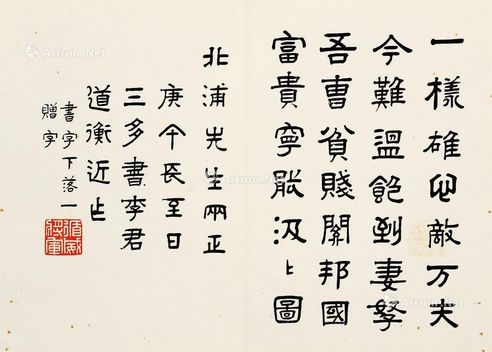 一樣雄心敵万夫
今難溫飽到妻孥
吾曹貧賤關邦國
富貴寧能汲〻圖
北浦先生兩正
庚午長至日
三多書李君
道衡近作
書字下落一
贈字
威將軍
Artron.Net
Artron.Net
Artron.Net
Artron.Net